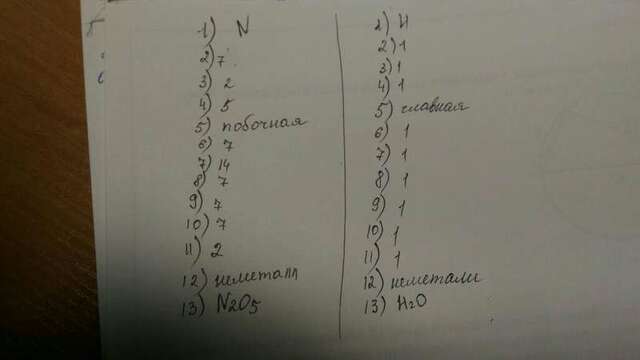 1) N
2) 7
3) 2
4) 5
5) побочная
6) 7
7) 14
8) 7
9) 7
10) 7
11) 2
12) неметалл
13) N2O5
1) H
2) 1
3) 1
4) 1
5) главная
6) 1
7) 1
8) 1
9) 1
10) 1
11) 1
12) неметалл
13) H2O